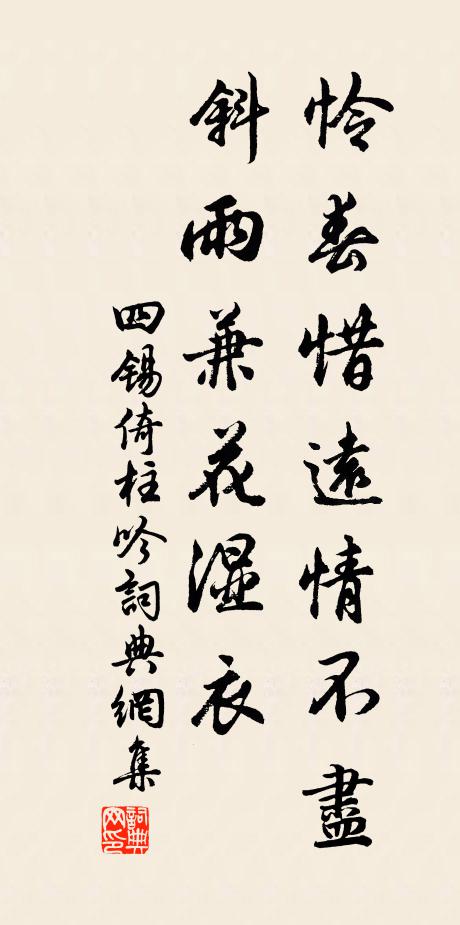 怜春惜遠情不盡
斜雨兼花湿衣
四錫倚柱吟詞典網集
詞典网印